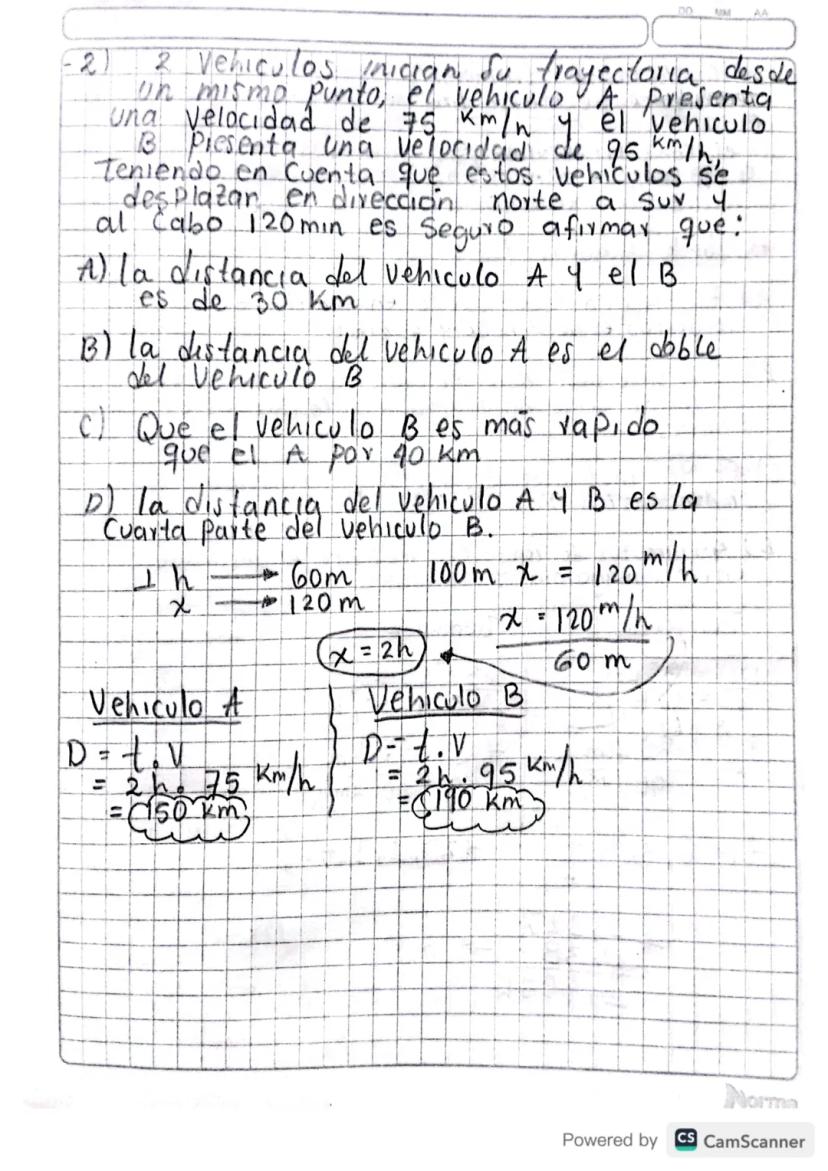 DD MM AA
-2) 2 Vehiculos inician su trayectoria desde
un mismo punto, el vehiculo A Presenta
una velocidad de 75 Km/h y el vehiculo
B Presenta una velocidad de 95 km/h,
Teniendo en Cuenta que estos vehiculos se
desplazan en dirección norte a sur y
al cabo 120min es seguro afirmar que:
A) la distancia del vehiculo A y el B
es de 30 Km
B) la distancia del vehiculo A es el doble
del Vehiculo B
C) Que el vehiculo B es más rapido
que el A por 40 km
D) la distancia del vehiculo A y B es la
Cuarta Parte del vehiculo B.
1 h → 60m 100m x = 120 m/h
x → 120m
x = 120 m/h
x = 2h 60 m
Vehiculo A Vehiculo B
D = t.V D = t.V
= 2 h. 75 Km/h = 2h. 95 Km/h
= 150 km = 190 km
Norma
Powered by CS CamScanner